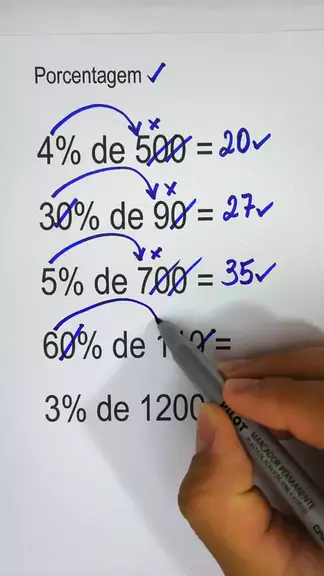 Porcentagem ✓
4% de 500 = 20✓
30% de 90 = 27✓
5% de 700 = 35✓
60% de =
3% de 1200
PILOT
MARCADOR PERMANENTE